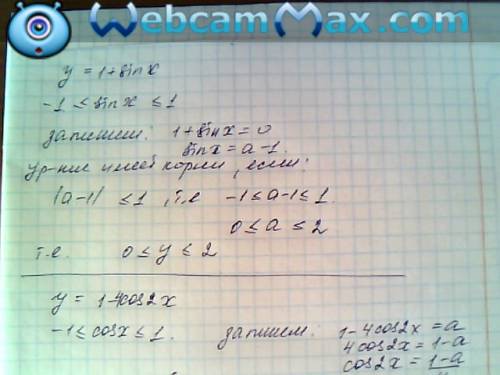 WebcamMax.com
y = 1 + sin x
-1 ≤ sin x ≤ 1
запишем: 1 + sin x = 0
sin x = a - 1.
Ур-ние имеет корни, если:
|a-1| ≤ 1, т.е -1 ≤ a-1 ≤ 1.
0 ≤ a ≤ 2
т.е. 0 ≤ y ≤ 2
y = 1-4cos2x
-1 ≤ cosx ≤ 1. запишем: 1-4cos2x = a
4cos2x = 1-a
cos2x = 1-a